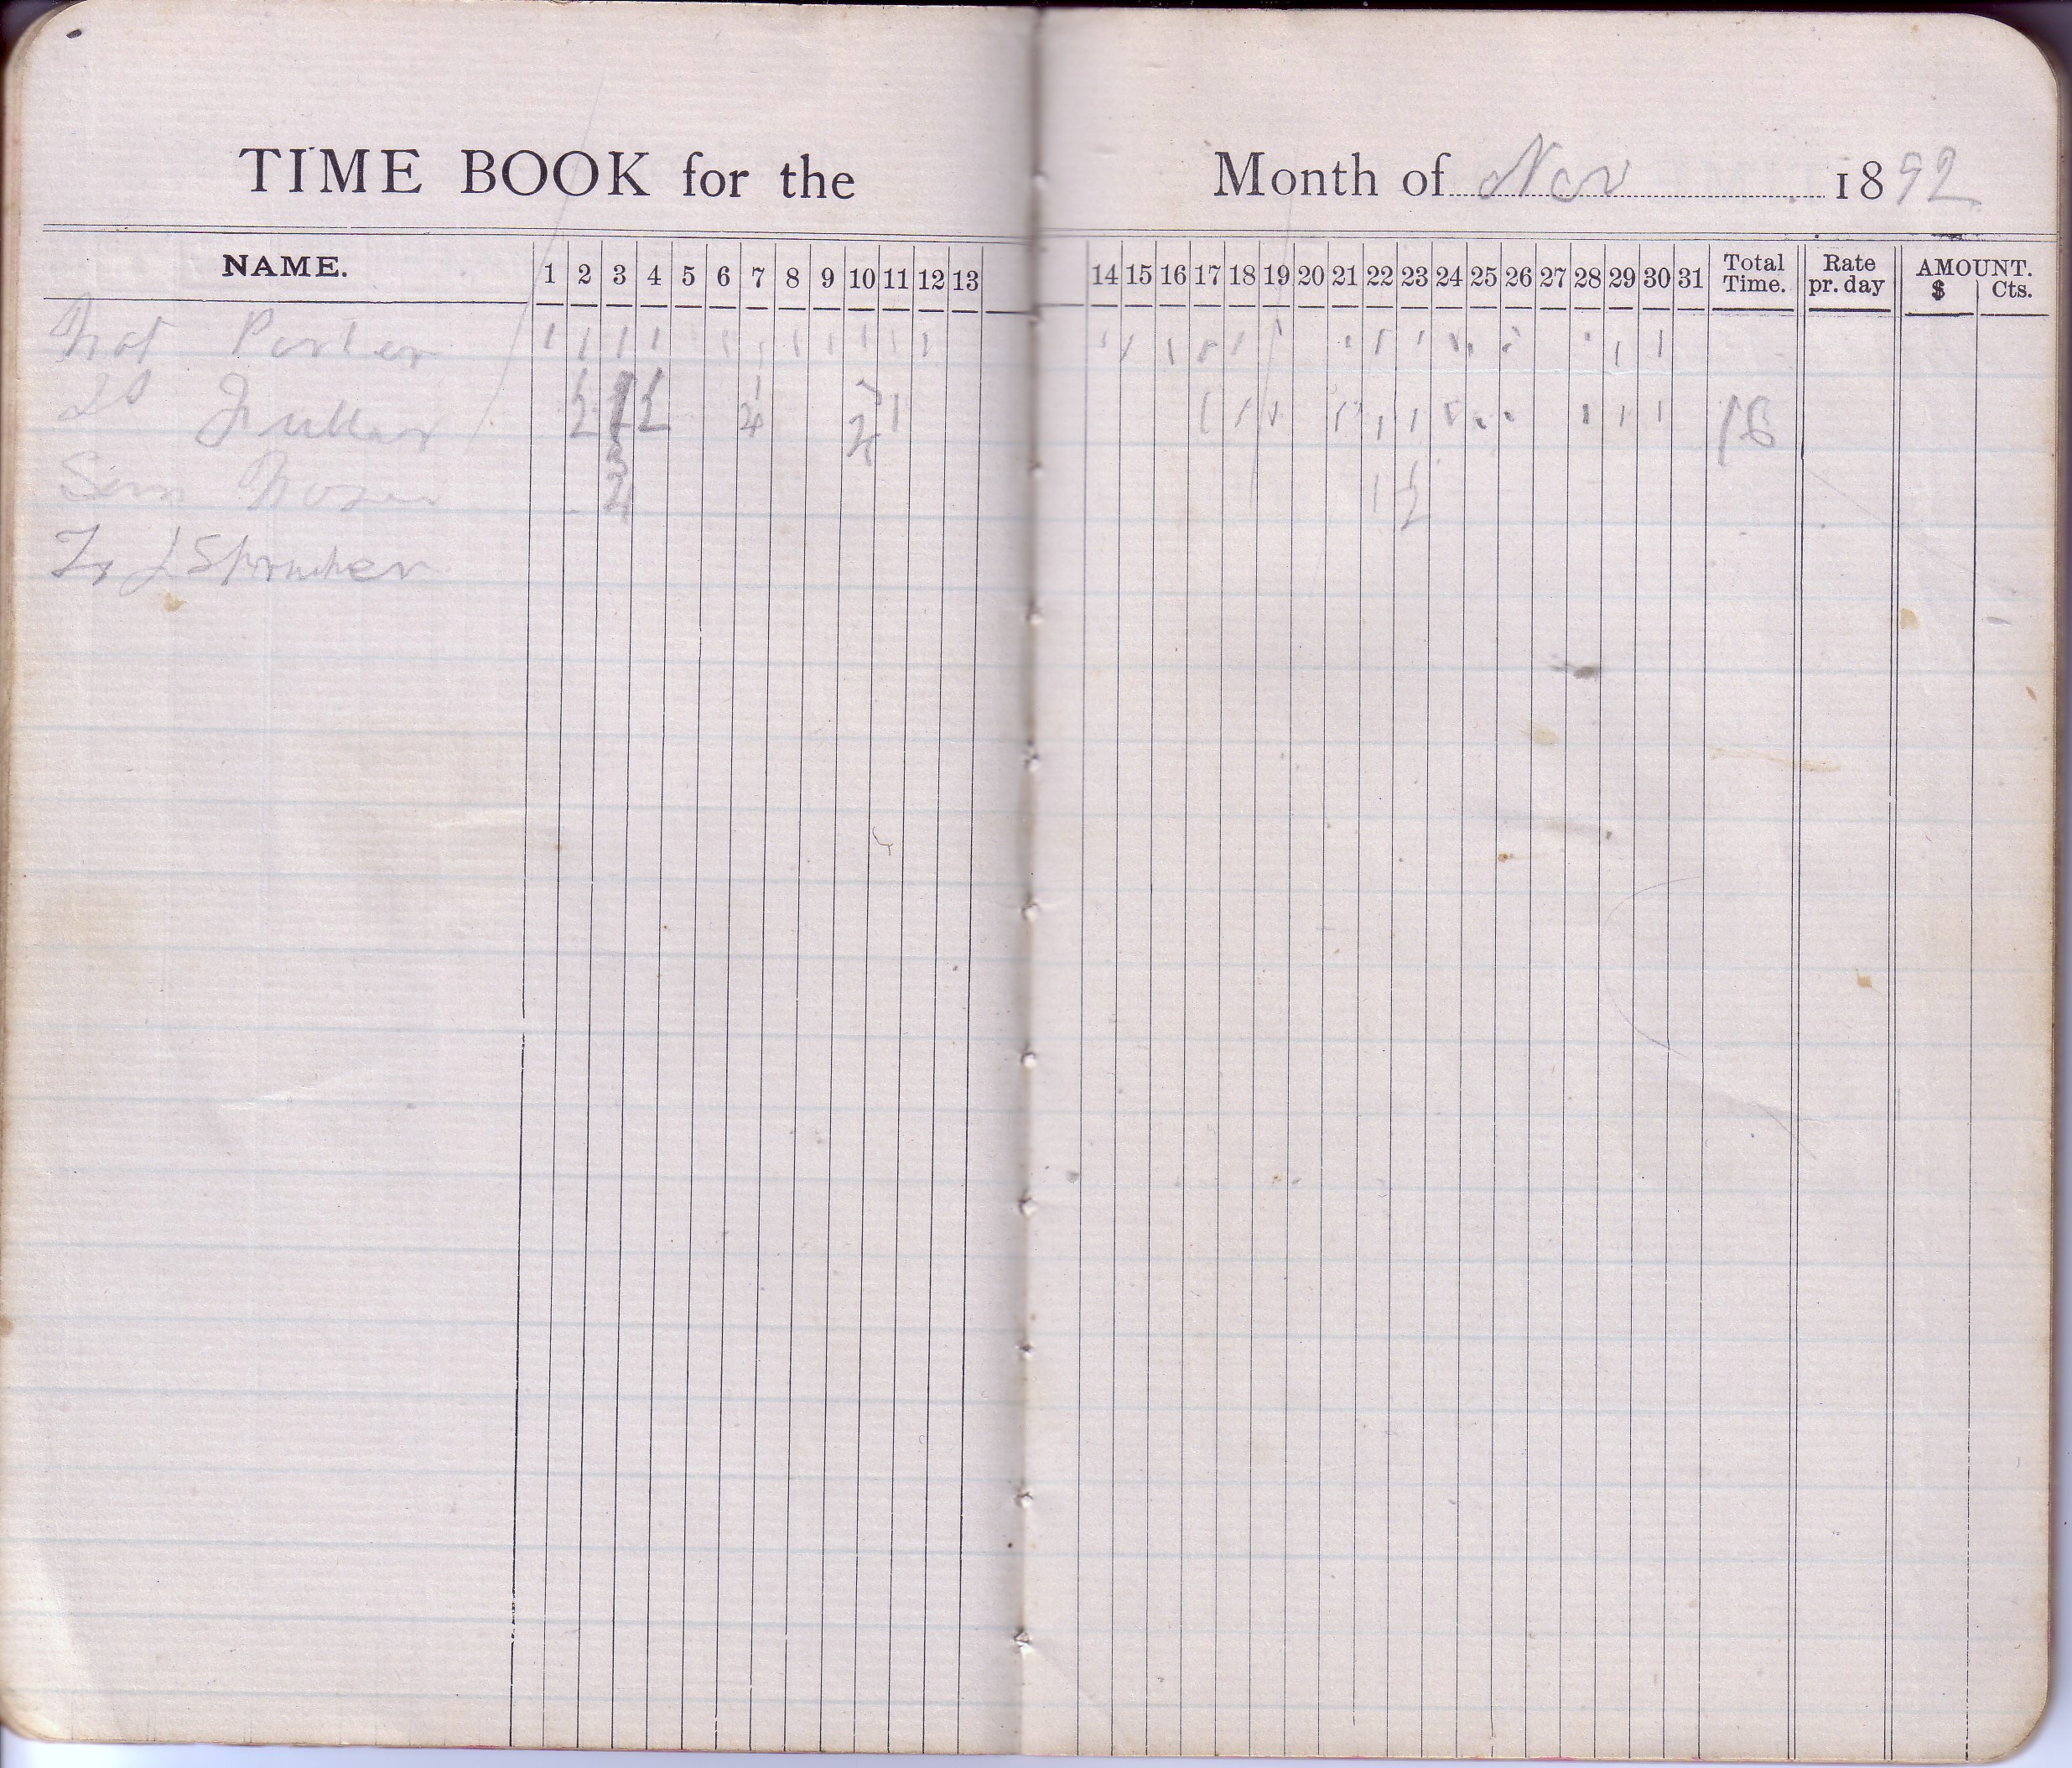 TIME BOOK for the Month of Nov 1892
NAME. 1 2 3 4 5 6 7 8 9 10 11 12 13 14 15 16 17 18 19 20 21 22 23 24 25 26 27 28 29 30 31 Total Time. Rate pr. day AMOUNT. $ Cts.
Nat Porter 1 1 1 1 1 1 1 1 1 1 1 1 1 1 1 1 1 1 1 1 1 1 1 1 1
Fuller 1/2 1 1/2 1/4 3/4 1 1 1 1 1 1 1 1 1 1 1 1 1 16
Sam 3/4 1 1/2